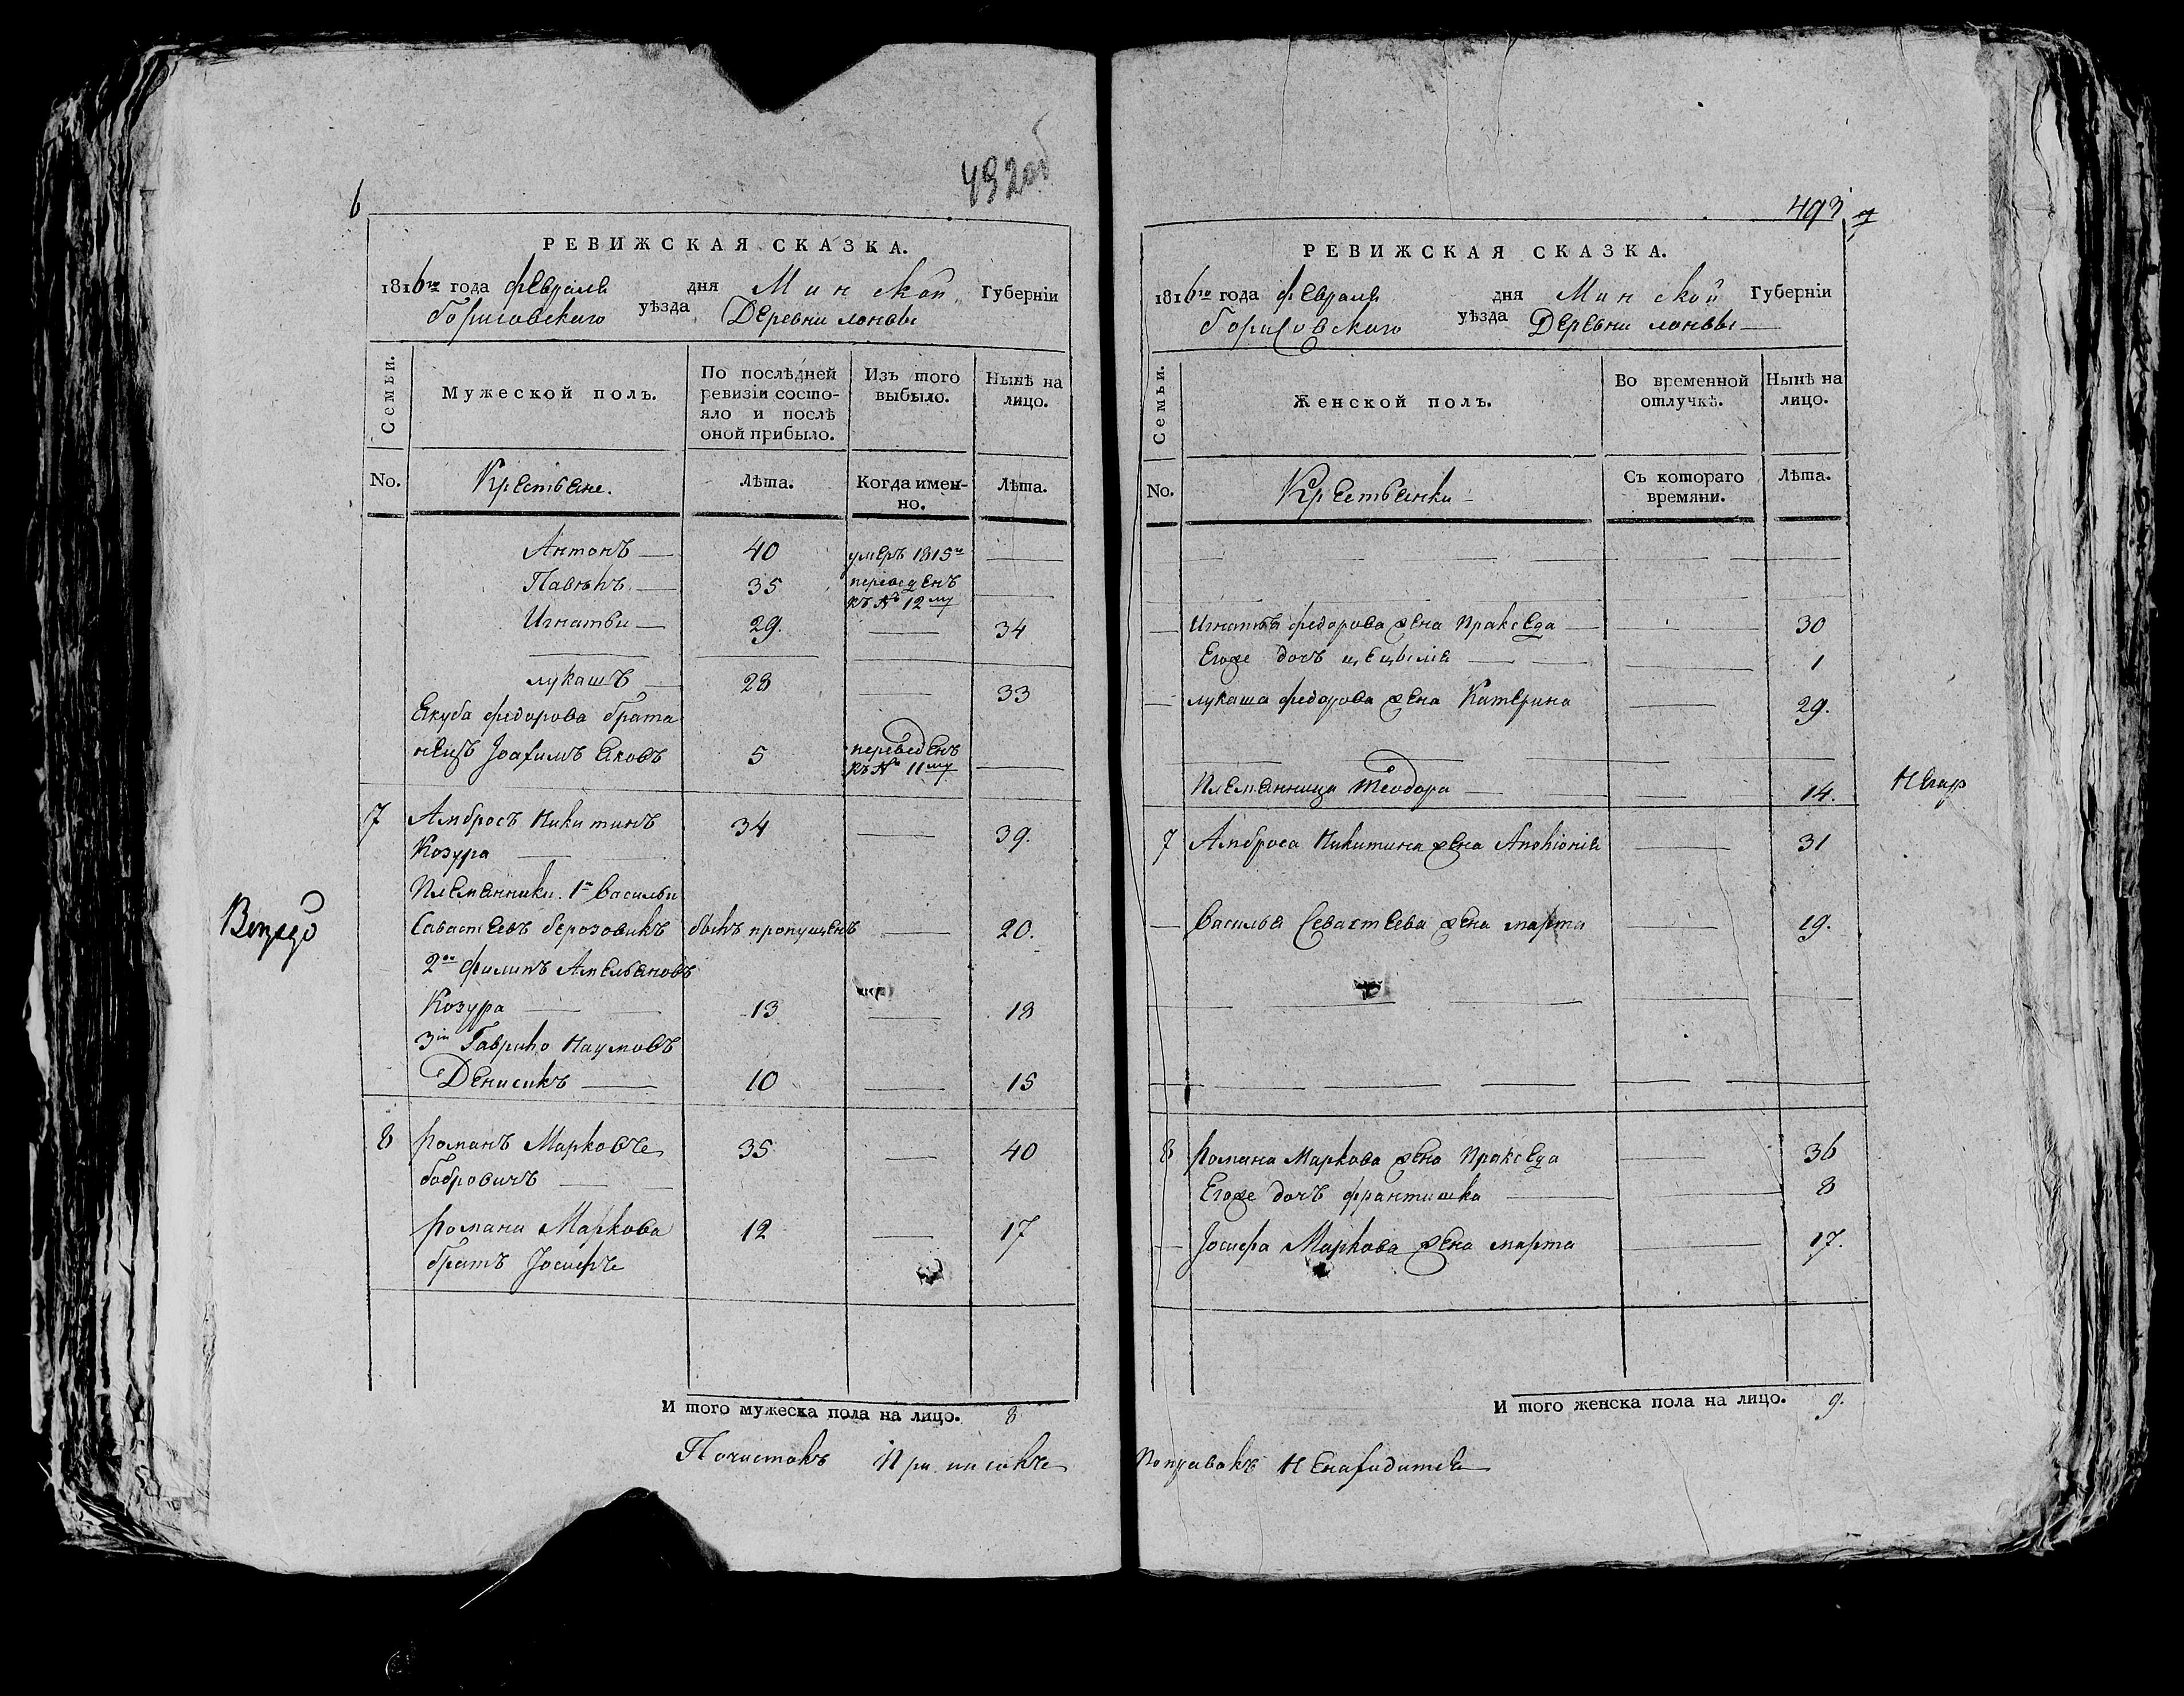 6
492 об
РЕВИЖСКАЯ СКАЗКА.
1816го года февраля дня Минской Губерніи
Борисовского уѣзда Деревни лоньвы
Семьи.
Мужеской полъ.
По послѣдней ревизіи состояло и послѣ оной прибыло.
Изъ того выбыло.
Нынѣ на лицо.
No.
Крестьяне.
Лѣта.
Когда именно.
Лѣта.
Антонъ — 40 умеръ 1815го —
Павелъ — 35 переведенъ къ № 12му —
Игнатьи — 29. — 34
лукашъ — 28 — 33
Якуба федорова брата
нецъ Joaхимъ Яковъ 5 переведенъ къ № 11му —
7 Амбросъ Никитинъ 34 — 39.
Козура —
Племянники. 1й Васильи
Савастеевъ берозовикъ былъ пропущенъ — 20.
2ой филипъ Амельяновъ
Козура — 13 — 18
3ій Гаврило Наумовъ
Денисикъ — 10 — 15
8 романъ Марковъ 35 — 40
бобровичъ —
романа Маркова 12 — 17
братъ Joсифъ
И того мужеска пола на лицо. 8
Почистокъ Приписокъ
493
7
РЕВИЖСКАЯ СКАЗКА.
1816го года февраля дня Минской Губерніи
борисовского уѣзда Деревни лоньвы —
Семьи.
Женской полъ.
Во временной отлучкѣ.
Нынѣ на лицо.
No.
Крестьянки —
Съ котораго времяни.
Лѣта.
— Игнатья федорова жена Пракседа — 30
Егоже дочъ цецылія — 1
— лукаша федорова жена Катерина — 29.
Племянница теодора — 14.
7 Амброса Никитина жена Аполонія — 31
— Василья Севастеева жена марта — 19.
8 романа Маркова жена Пракседа — 36
Егоже дочъ франтишка — 8
— Joсифа Маркова жена марта — 17.
И того женска пола на лицо. 9.
поправокъ не находится